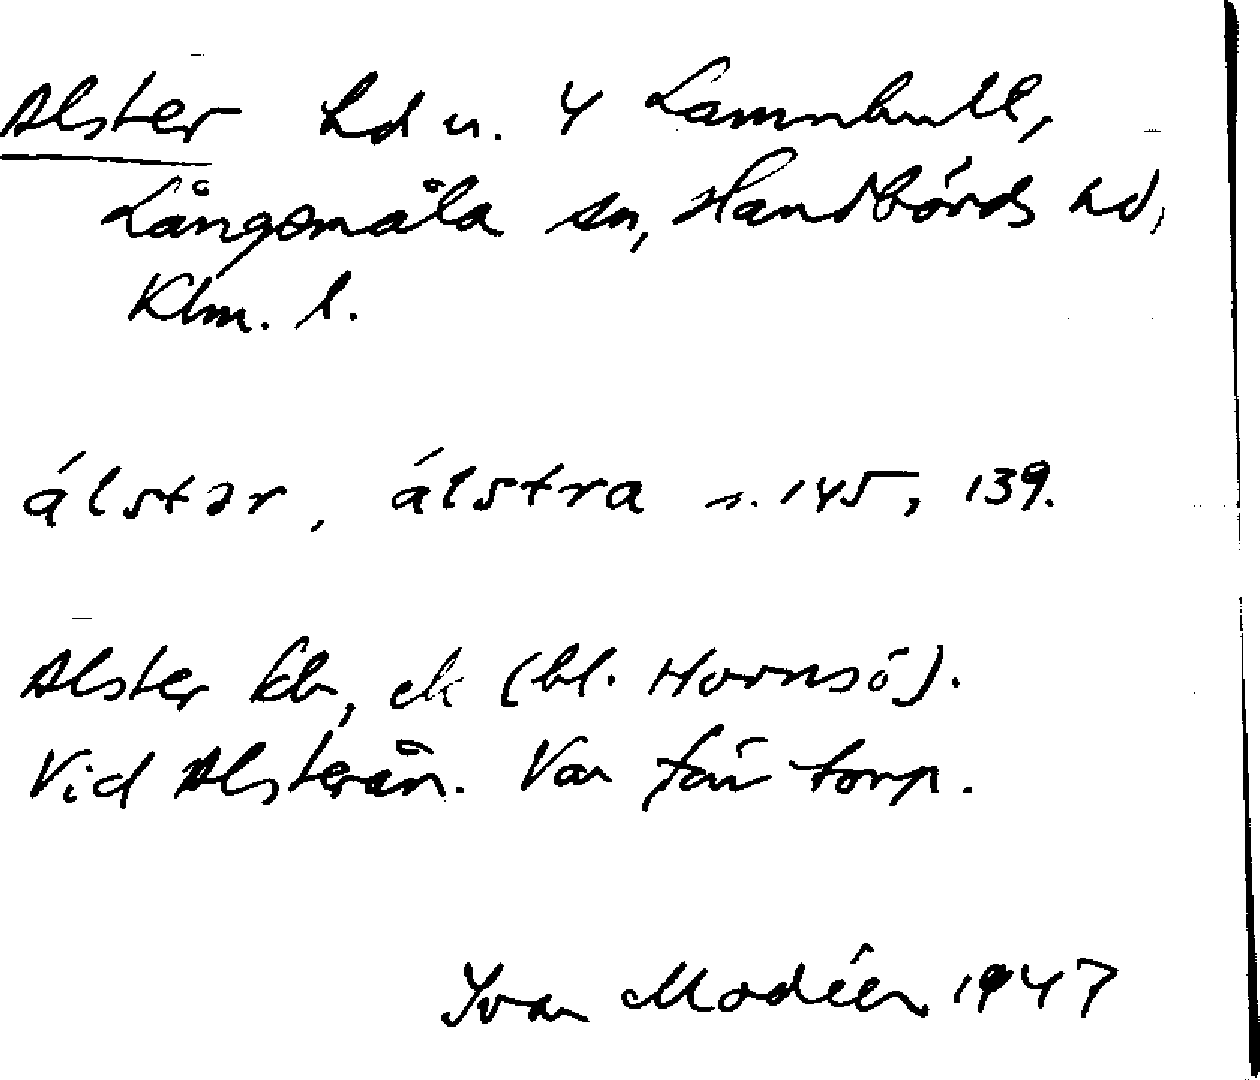 Alster Ld u. 4 Lammhult,
Långemåla sn, Handbörds hd,
Klm. l.
álstər, álstra s. 145, 139.
Alster kb, ek (bl. Hornsö).
Vid Alsterån. Var förr torp.
Ivar Modéer 1947